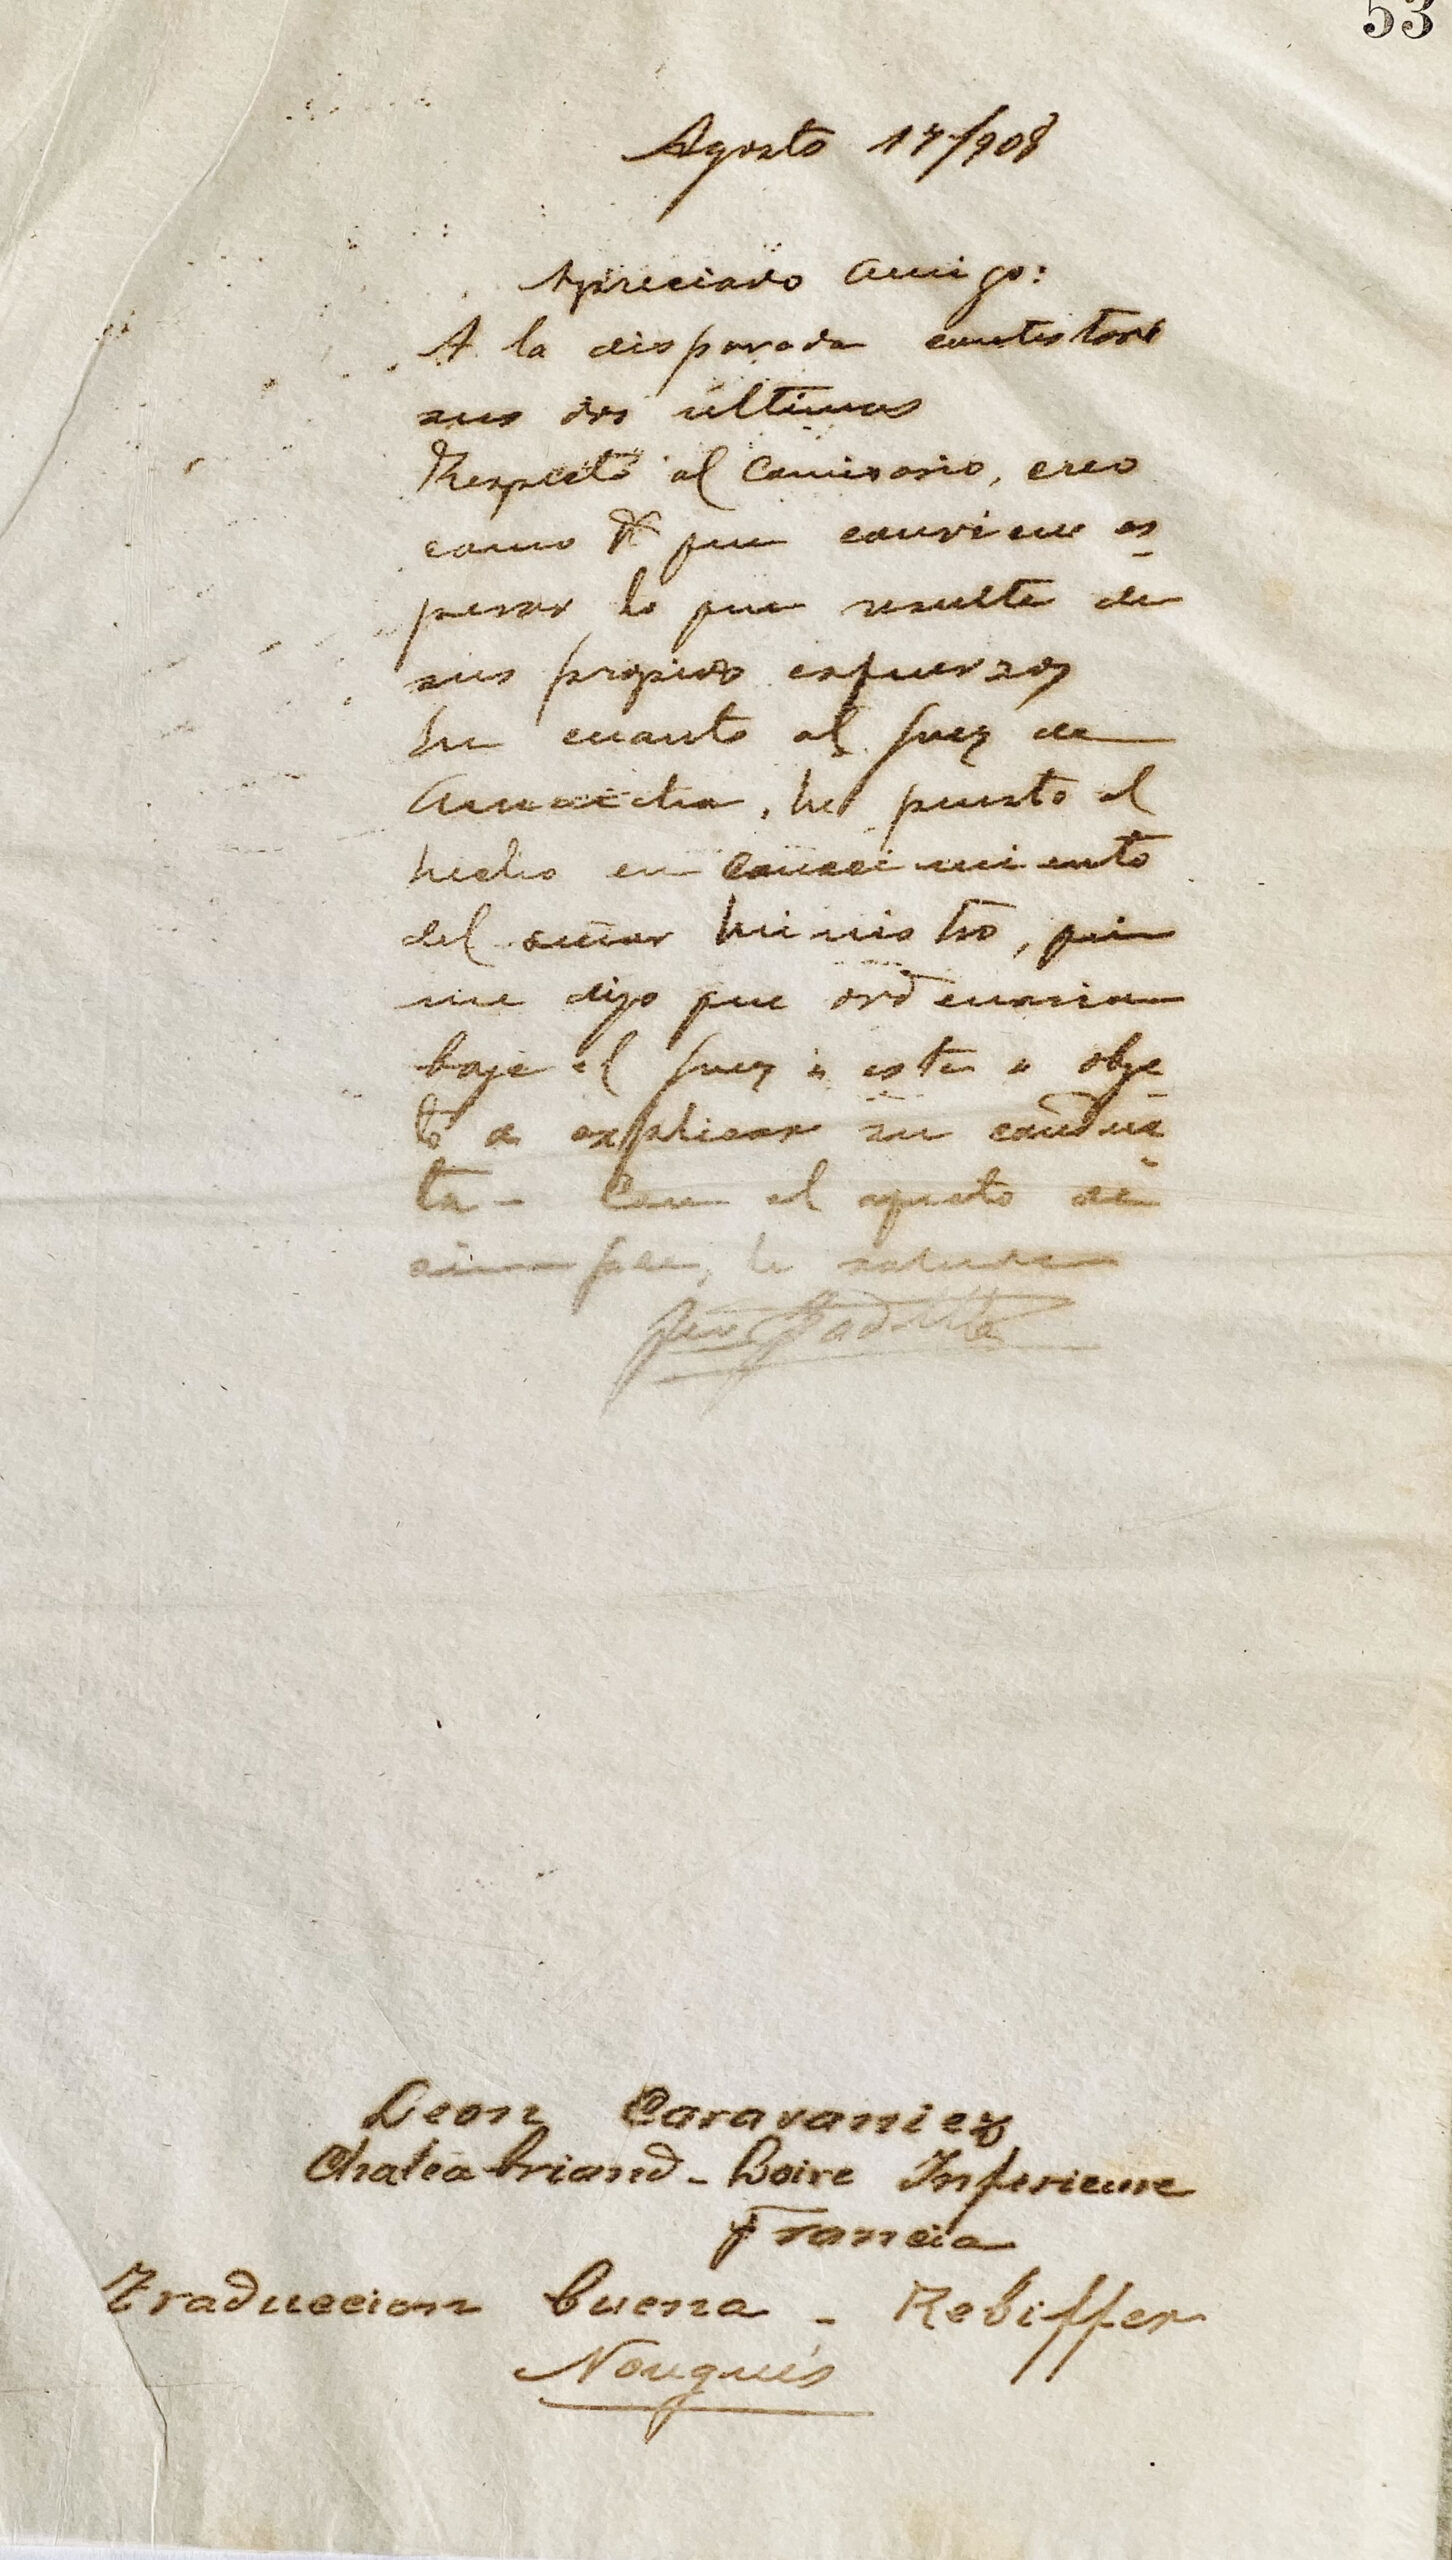 53
Agosto 17/908
Apreciado amigo:
A la disparada contestaré
sus dos últimas
Respecto al Comisario, creo
como que conviene es-
perar lo que resulte de
sus propios esfuerzos
En cuanto al Juez de
Amaicha, he puesto el
hecho en conocimiento
del señor Ministro, quien
me dijo que ordenaria
baje el Juez á esta a obje-
to de explicar su conduc-
ta - Con el afecto de
siempre, le saluda
Padilla
Leon Caravaniez
Chateabriand - Loire Inferieure
Francia
Traduccion buena - Rebiffer
Nougués